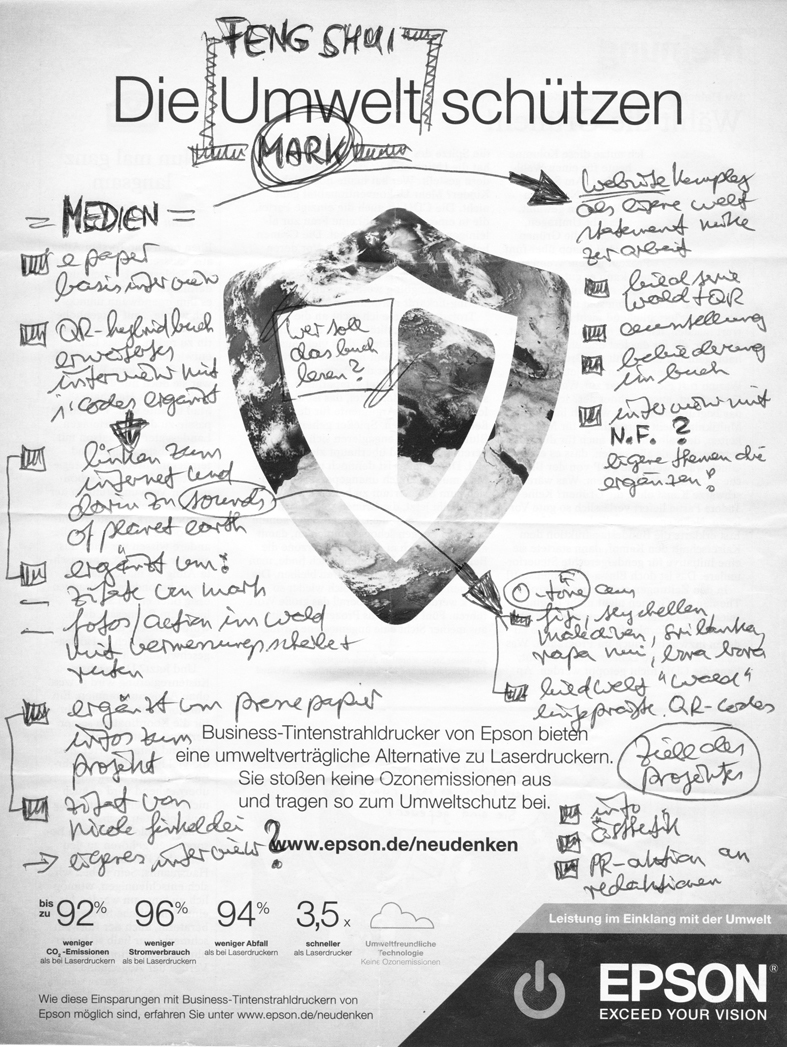 FENG SHUI
Die Umwelt schützen
MARK
= MEDIEN =
e paper
basisinterview
QR-hybridbuch
erweitertes
interview mit
codes ergänzt
linken zum
internet und
darin zu sounds
of planet earth
ergänzt um:
— zitate von mark
— fotos/aktion im wald
mit vermessungs
ergänzt um pressepapier
infos zum
projekt
zitat von
nicole
→ eigenes interview?
wer soll
das buch
lesen?
website
als eigene welt
statement
zur arbeit
bildserie
wald + QR
ausstellung
bebilderung
im buch
interview mit
N.F. ?
eigene themen die
ergänzen!
O-töne aus
fiji, seychellen,
malediven, sri lanka,
rapa nui, bora bora
bildwelt "wald"
QR-codes
ziele des
projektes
info
ästhetik
PR-aktion an
redaktionen
Business-Tintenstrahldrucker von Epson bieten
eine umweltverträgliche Alternative zu Laserdruckern.
Sie stoßen keine Ozonemissionen aus
und tragen so zum Umweltschutz bei.
www.epson.de/neudenken
bis zu 92% 96% 94% 3,5 x
weniger CO₂-Emissionen als bei Laserdruckern
weniger Stromverbrauch als bei Laserdruckern
weniger Abfall als bei Laserdruckern
schneller als Laserdrucker
Umweltfreundliche Technologie Keine Ozonemissionen
Wie diese Einsparungen mit Business-Tintenstrahldruckern von
Epson möglich sind, erfahren Sie unter www.epson.de/neudenken
Leistung im Einklang mit der Umwelt
EPSON®
EXCEED YOUR VISION